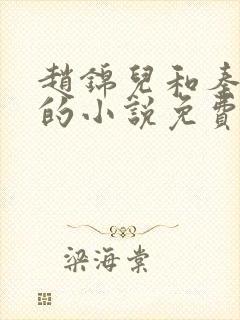 趙錦兒和秦
的小說免費
梁海棠